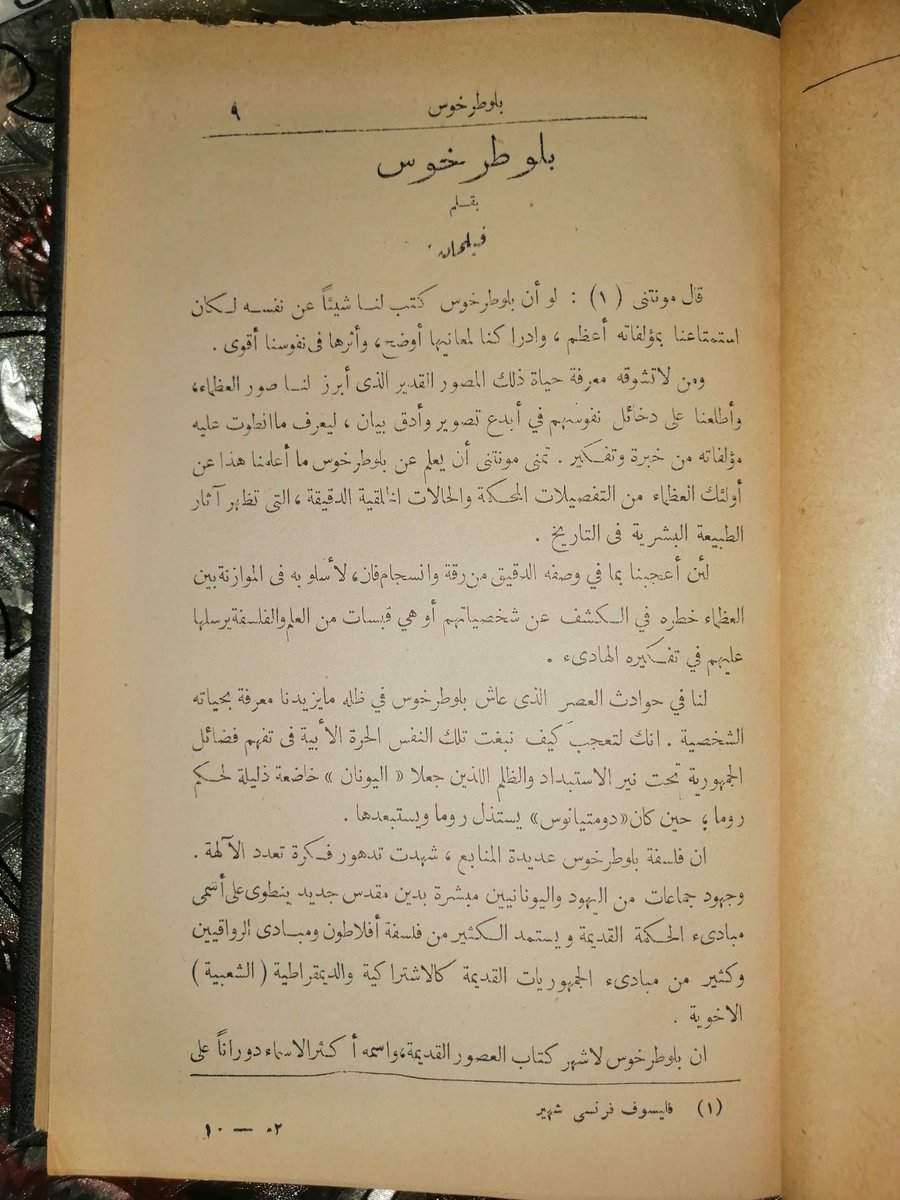 بلوطرخوس ٩
بلوطرخوس
بقلم
فيلمان
قال مونتنى (١) : لو أن بلوطرخوس كتب لنا شيئاً عن نفسه لكان
استمتاعنا بمؤلفاته أعظم ، وادراكنا لمعانيها أوضح ، وأثرها فى نفوسنا أقوى .
ومن لا تشوقه معرفة حياة ذلك المصور القدير الذى أبرز لنا صور العظماء ،
وأطلعنا على دخائل نفوسهم في أبدع تصوير وأدق بيان ، ليعرف ما انطوت عليه
مؤلفاته من خبرة وتفكير . تمنى مونتنى أن يعلم عن بلوطرخوس ما أعلمنا هذا عن
أولئك العظماء من التفصيلات المحكمة والحالات الخلقية الدقيقة ، التى تظهر آثار
الطبيعة البشرية فى التاريخ .
لئن أعجبنا بما في وصفه الدقيق من رقة وانسجام فان، لأسلوبه فى الموازنة بين
العظماء خطره في الكشف عن شخصياتهم أو هي قبسات من العلم والفلسفة يرسلها
عليهم في تفكيره الهادىء .
لنا في حوادث العصر الذى عاش بلوطرخوس في ظله ما يزيدنا معرفة بحياته
الشخصية . انك لتعجب كيف نبغت تلك النفس الحرة الأبية فى تفهم فضائل
الجمهورية تحت نير الاستبداد والظلم اللذين جعلا « اليونان » خاضعة ذليلة لحكم
روما ، حين كان «دومتيانوس» يستذل روما ويستبعدها .
ان فلسفة بلوطرخوس عديدة المنابع ، شهدت تدهور فكرة تعدد الآلهة .
وجهود جماعات من اليهود واليونانيين مبشرة بدين مقدس جديد ينطوى على أسمى
مبادىء الحكمة القديمة ويستمد الكثير من فلسفة أفلاطون ومبادى الرواقيين
وكثير من مبادىء الجمهوريات القديمة كالاشتراكية والديمقراطية ( الشعبية )
الاخوية .
ان بلوطرخوس لاشهر كتاب العصور القديمة، واسمه أكثر الاسماء دوراناً على
(١) فليسوف فرنسى شهير
٠٢ — ١٠